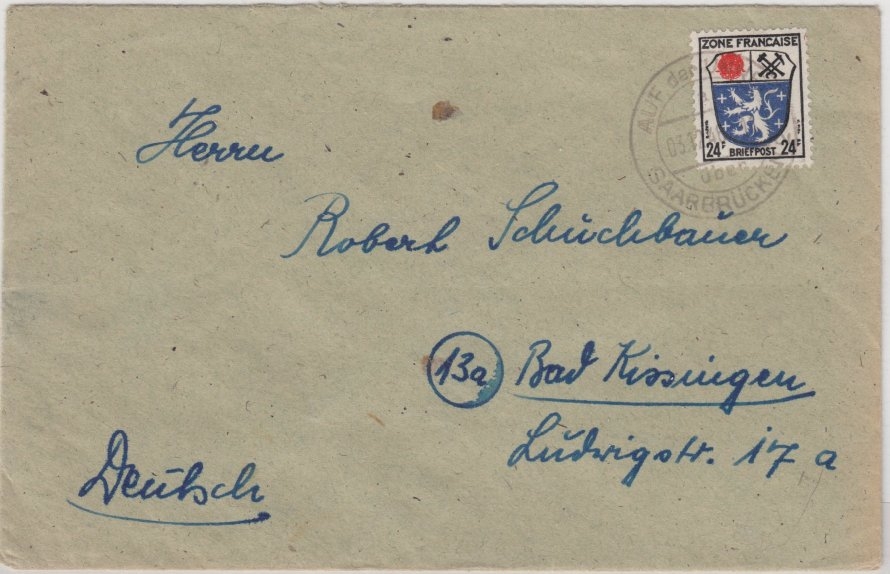 ZONE FRANCAISE
24F BRIEFPOST 24F
AUF der
03.1
oben
SAARBRÜCKEN
Herrn
Robert Schuchbauer
13a Bad Kissingen
Ludwigstr. 17 a
Deutsch